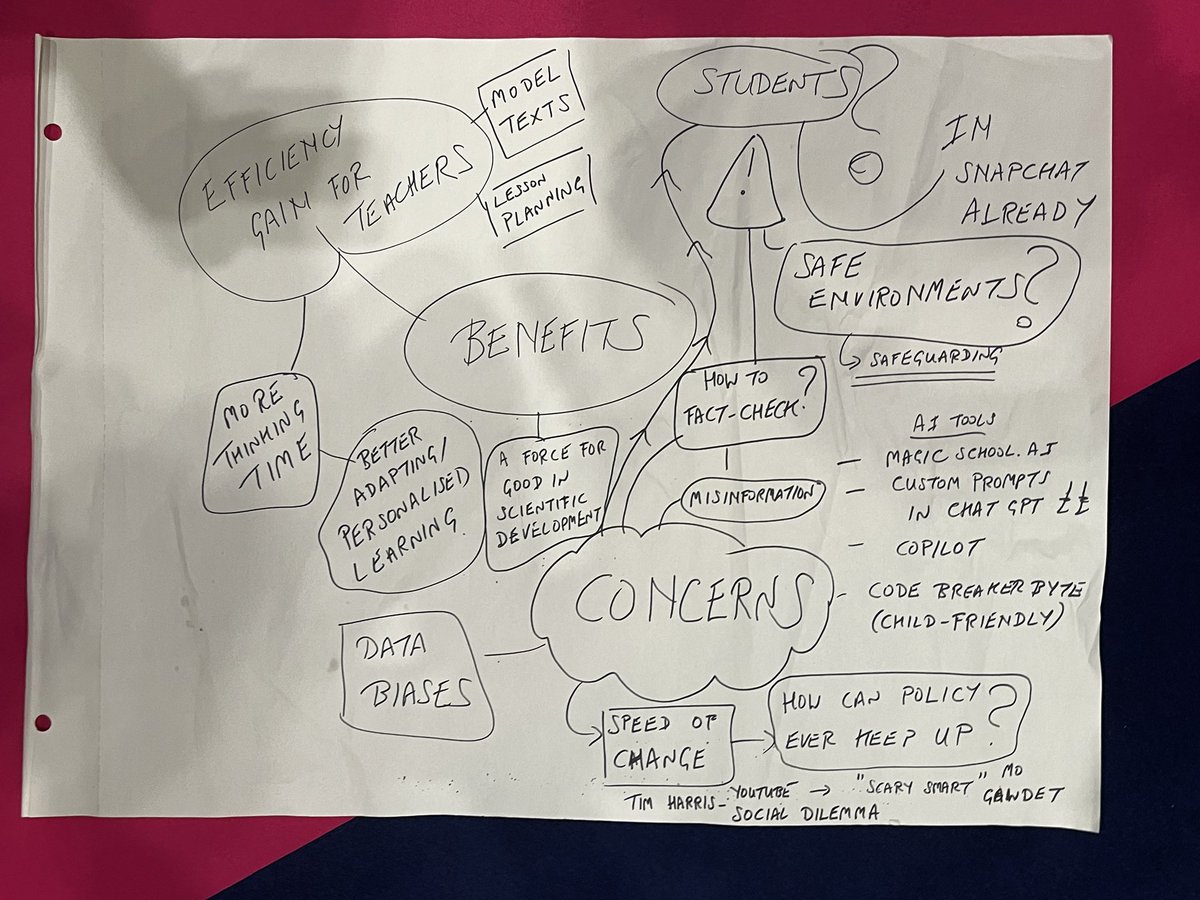 EFFICIENCY
GAIM FOR
TEACHERS
MODEL
TEXTS
LESSON
PLANNING
STUDENTS?
!
IM
SNAPCHAT
ALREADY
SAFE
ENVIRONMENTS?
SAFEGUARDING
BENEFITS
HOW TO
FACT-CHECK?
MISINFORMATION
MORE
THINKING
TIME
BETTER
ADAPTING/
PERSONALISED
LEARNING.
A FORCE FOR
GOOD IN
SCIENTIFIC
DEVELOPMENT
AI TOOLS
— MAGIC SCHOOL.AI
— CUSTOM PROMPTS
IN CHAT GPT ££
— COPILOT
- CODE BREAKER BYTE
(CHILD-FRIENDLY)
CONCERNS
DATA
BIASES
SPEED OF
CHANGE
HOW CAN POLICY
EVER KEEP UP?
TIM HARRIS - YOUTUBE → "SCARY SMART" MO
SOCIAL DILEMMA GAWDET